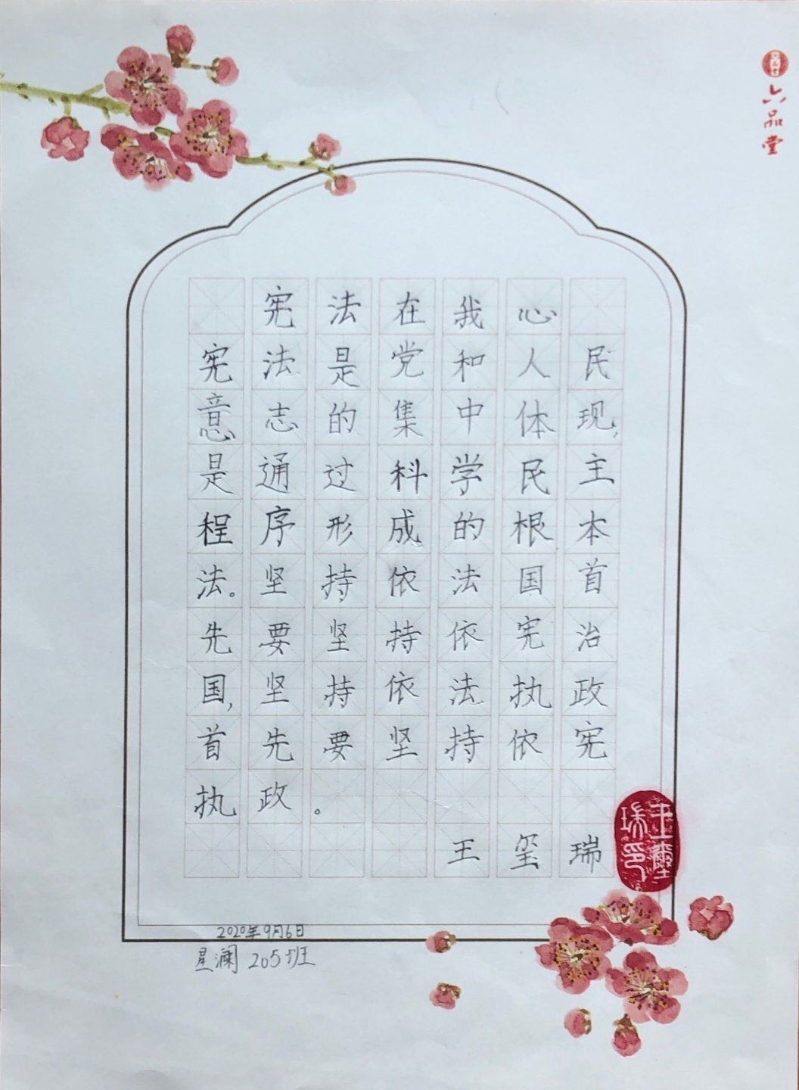 六品堂
宪法在我心
宪法是党和人民
意志的集中体现,
是通过科学民主
程序形成的根本
法。坚持依法国首
先要坚持依宪治
国,坚持依法执政
首先要坚持依宪
执政。
王玺瑞
2020年9月6日
星澜 205班